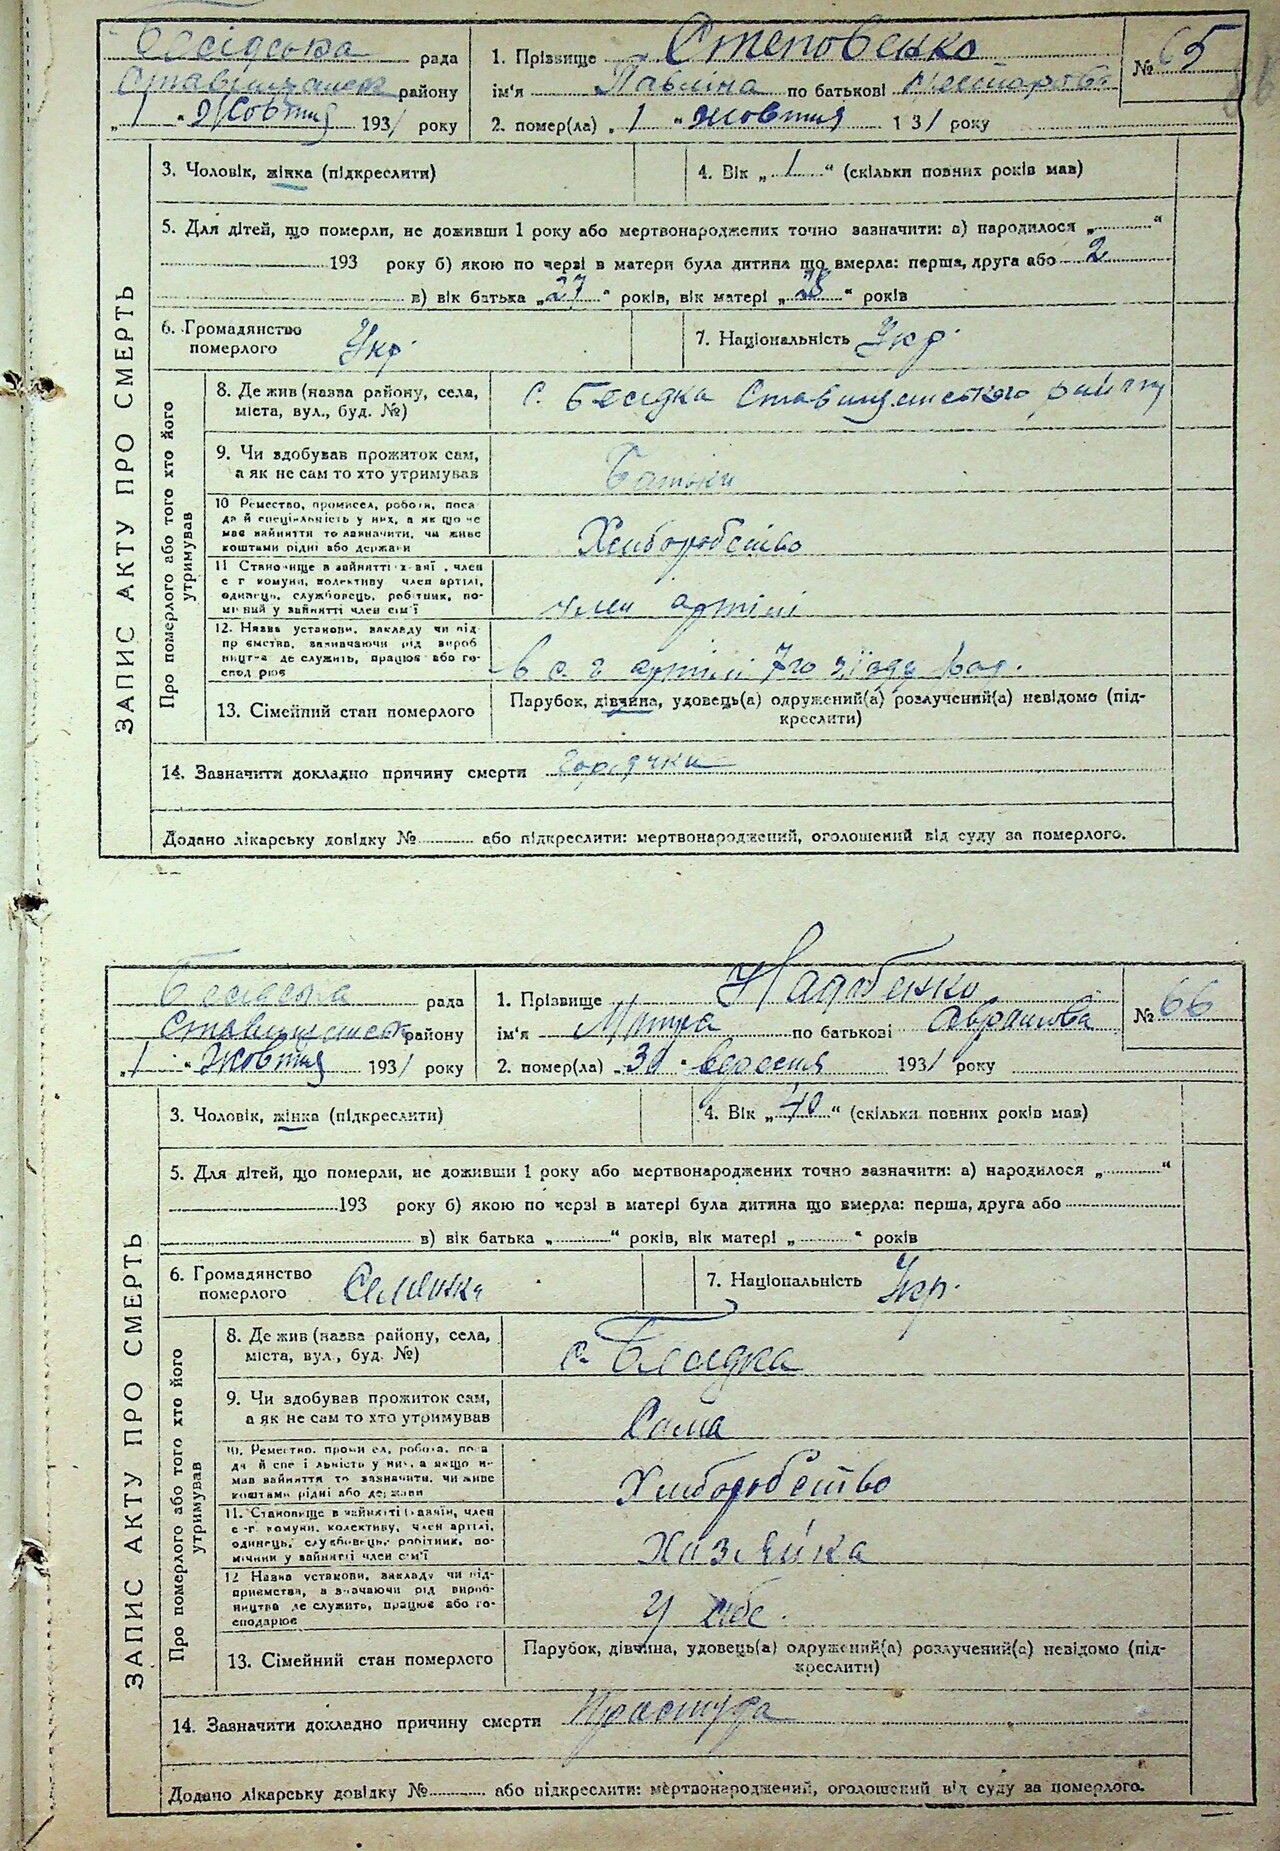 Бесідська рада
Ставищанськ району
„1" Жовтня 1931 року
1. Прізвище Степовенко
ім'я Павлина по батькові
2. помер(ла) „1" жовтня 1 31 року
№ 65
ЗАПИС АКТУ ПРО СМЕРТЬ
3. Чоловік, жінка (підкреслити)
4. Вік „1" (скільки повних років мав)
5. Для дітей, що померли, не доживши 1 року або мертвонароджених точно зазначити: а) народилося „ "
193 року б) якою по черзі в матери була дитина що вмерла: перша, друга або 2
в) вік батька „27" років, вік матері „28" років
6. Громадянство померлого Укр.
7. Національність Укр.
Про померлого або того хто його утримував
8. Де жив (назва району, села, міста, вул., буд. №)
с. Бесідка Ставищенського району
9. Чи здобував прожиток сам, а як не сам то хто утримував
Батьки
10 Ремество, промисел, робота, поса-
да й спеціяльність у них, а як що не
має зайняття то зазначити, чи живе
коштами рідні або держави
Хлиборобство
11 Становище в зайнятті х зяї , член
с г комуни, колективу член артілі,
одинець, службовець, робітник, по-
мічний у зайнятті член сім'ї
член артілі
12. Назва установи, закладу чи під-
пр ємства, зазначаючи рід вироб
ництва де служить, працює або го-
спод рює
в с. г артілі 7го зїзду рад.
13. Сімейний стан померлого
Парубок, дівчина, удовець(а) одружений(а) розлучений(а) невідомо (під-
креслити)
14. Зазначити докладно причину смерти горячка
Додано лікарську довідку № або підкреслити: мертвонароджений, оголошений від суду за померлого.
рада
Ставищанськ району
„1" Жовтня 1931 року
1. Прізвище
ім'я по батькові
2. помер(ла) „30" вересня 1931 року
№ 66
ЗАПИС АКТУ ПРО СМЕРТЬ
3. Чоловік, жінка (підкреслити)
4. Вік „40" (скільки повних років мав)
5. Для дітей, що померли, не доживши 1 року або мертвонароджених точно зазначити: а) народилося „ "
193 року б) якою по черзі в матері була дитина що вмерла: перша, друга або
в) вік батька „ " років, вік матері „ " років
6. Громадянство померлого Селянка
7. Національність Укр.
Про померлого або того хто його утримував
8. Де жив (назва району, села, міста, вул., буд. №)
с. Бесідка
9. Чи здобував прожиток сам, а як не сам то хто утримував
Сама
10. Ремество, проми ел, робота, поса
да й спе і льність у них, а якщо н-
має зайняття то зазначити, чи живе
коштами рідні або держави
Хлиборобство
11. Становище в зайнятті хазяїн, член
с-г комуни, колективу, член артілі,
одинець, службовець, робітник, по-
мічний у зайнятті член сім'ї
Хазяйка
12 Назва установи, закладу чи під-
приємства, з значаючи рід вироб-
ництва де служить, працює або го-
сподарює
У себе.
13. Сімейний стан померлого
Парубок, дівчина, удовець(а) одружений(а) розлучений(а) невідомо (під-
креслити)
14. Зазначити докладно причину смерти Простуда
Додано лікарську довідку № або підкреслити: мертвонароджений, оголошений від суду за померлого.